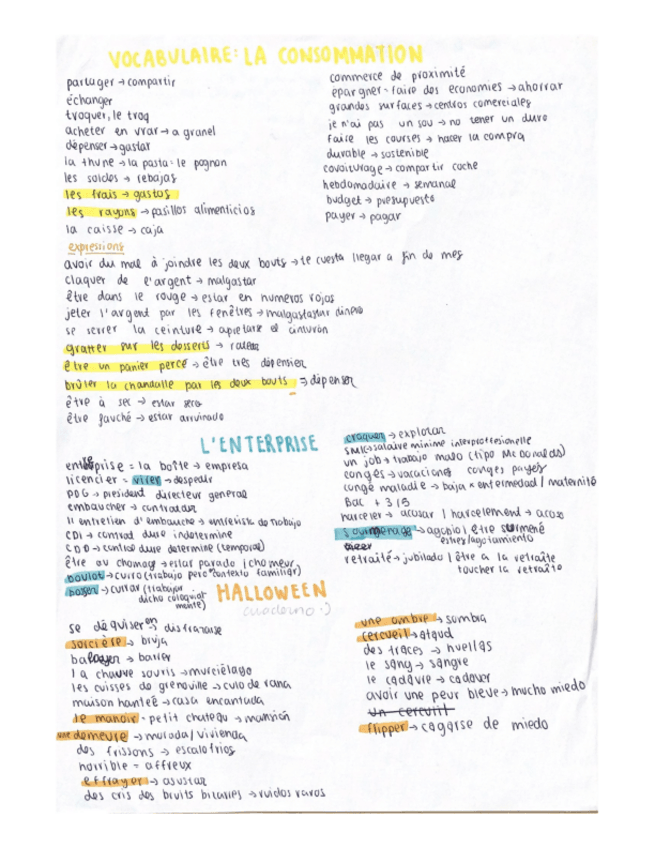 VOCABULAIRE: LA CONSOMMATION
partager → compartir
échanger
troquer, le troq
acheter en vrar → a granel
dépenser → gastar
la thune → la pasta = le pognon
les soldes → rebajas
les frais → gastos
les rayons → pasillos alimenticios
la caisse → caja
commerce de proximité
epargner = faire des economies → ahorrar
grandes surfaces → centros comerciales
je n'ai pas un sou → no tener un duro
faire les courses → hacer la compra
durable → sostenible
covoiturage → compartir coche
hebdomadaire → semanal
budget → presupuesto
payer → pagar
expressions
avoir du mal à joindre les deux bouts → te cuesta llegar a fin de mes
claquer de l'argent → malgastar
être dans le rouge → estar en numeros rojos
jeter l'argent par les fenêtres → malgastar dinero
se serrer la ceinture → apretarse el cinturón
gratter sur les desserts →
être un panier percé → être très dépensier
brûler la chandalle par les deux bouts → dépenser
être à sec → estar seco
être fauché → estar arruinado
L'ENTERPRISE
enterprise = la boîte → empresa
licencier = virer → despedir
PDG → president directeur general
embaucher → contratar
Il entretien d'embauche → entrevista de trabajo
CDI → contrat dure indetermine
CDD → contrat dure determine (temporal)
être au chomage → estar parado / chomeur
boulot → curro (trabajo pero contexto familiar)
bosser → currar (trabajar dicho coloquialmente)
craquer → explotar
SMIC → salaire minime interproffesionelle
un job → trabajo malo (tipo Mc Donalds)
congés → vacaciones congés payés
congé maladie → baja x enfermedad / maternité
Bac + 3/5
harceler → acosar / harcelement → acoso
Sourmenage → agobio / être surmené
estres/agotamiento
retraité → jubilado / être a la retraîte
toucher la retraîte
HALLOWEEN
cuaderno :)
se déguiser en → disfrazarse
sorcière → bruja
balayer → barrer
la chauve souris → murciélago
les cuisses de grenouille → culo de rana
maison hanteé → casa encantada
le manoir = petit chateau → mansión
une demeure → morada / vivienda
des frissons → escalofrios
horrible = affreux
effrayer → asustar
des cris des bruits bizarres → ruidos raros
une ombre → sombra
cercueil → ataud
des traces → huellas
le sang → sangre
le cadavre → cadaver
avoir une peur bleue → mucho miedo
un cercuil
flipper → cagarse de miedo